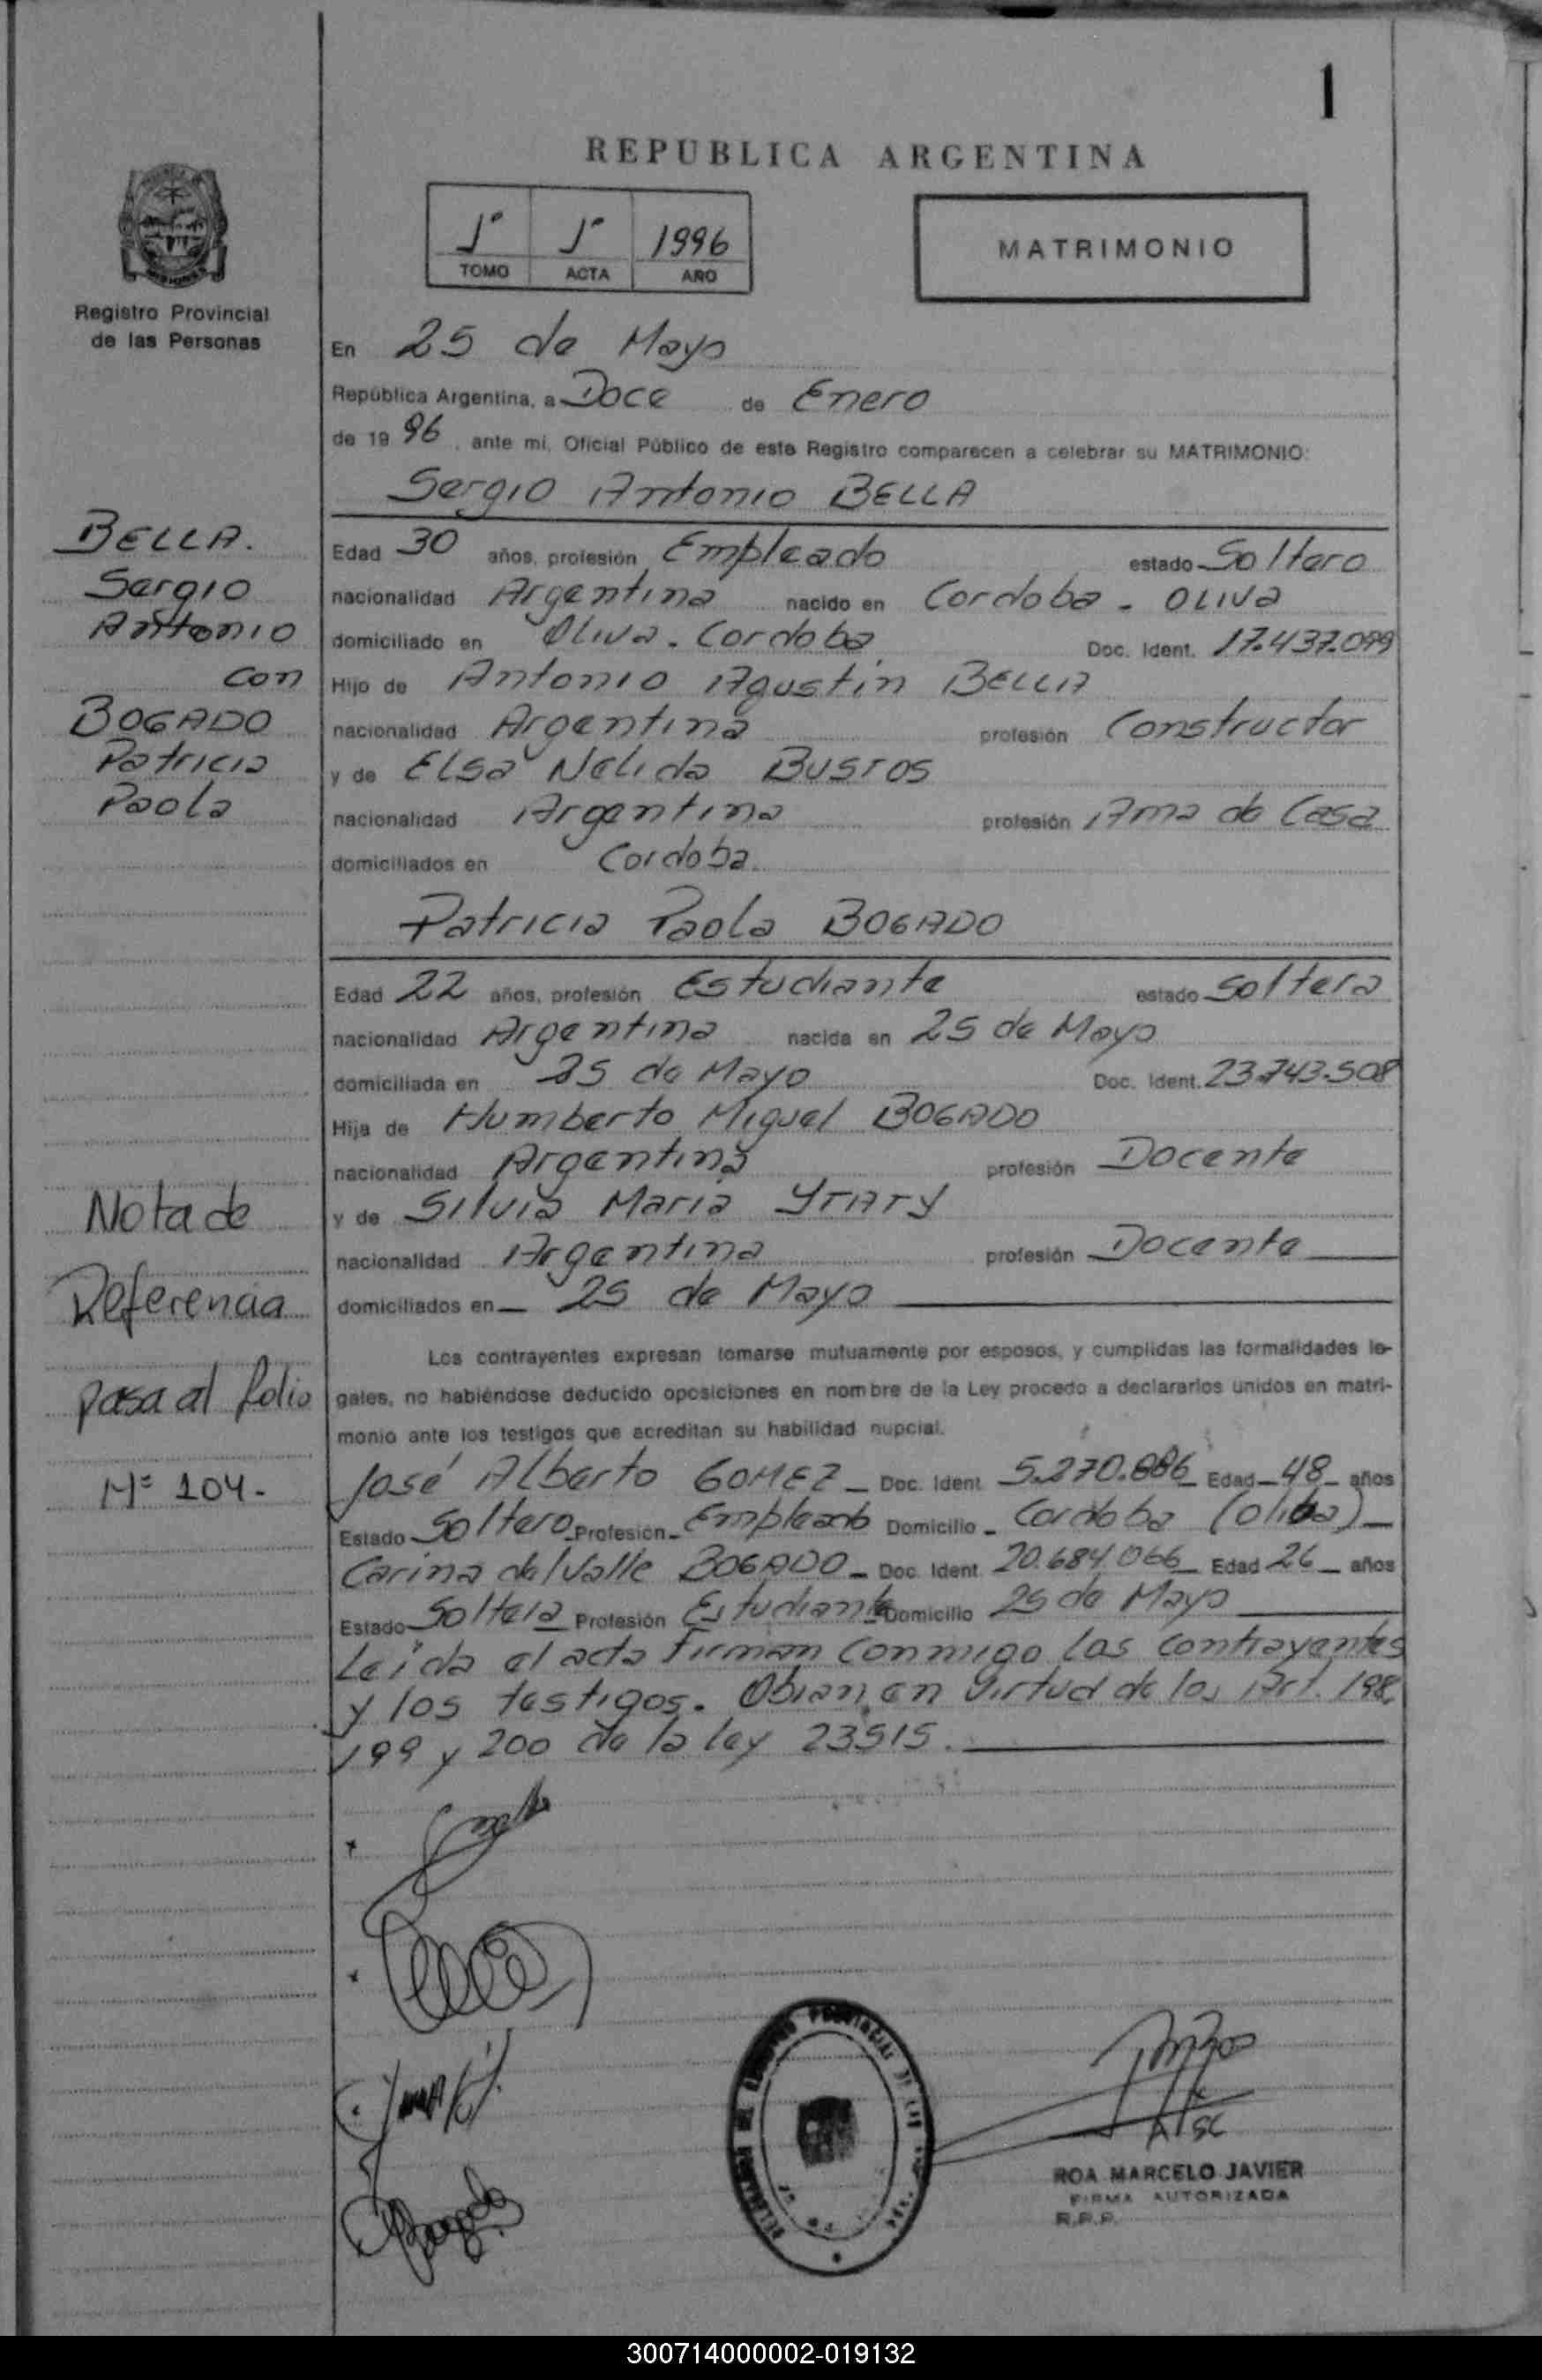 1
REPUBLICA ARGENTINA
1º 1º 1996
TOMO ACTA AÑO
MATRIMONIO
Registro Provincial
de las Personas
En 25 de Mayo
República Argentina, a Doce de Enero
de 19 96, ante mi, Oficial Público de este Registro comparecen a celebrar su MATRIMONIO:
Sergio Antonio BELLA
BELLA.
Sergio
Antonio
con
BOGADO
Patricia
Paola
Edad 30 años, profesión Empleado estado Soltero
nacionalidad Argentina nacido en Cordoba - OLIVA
domiciliado en Oliva - Cordoba Doc. Ident. 17.437.099
Hijo de Antonio Agustín BELLA
nacionalidad Argentina profesión Constructor
y de ELSA Nelida BUSTOS
nacionalidad Argentina profesión Ama de Casa
domiciliados en Cordoba.
Patricia Paola BOGADO
Edad 22 años, profesión Estudiante estado Soltera
nacionalidad Argentina nacida en 25 de Mayo
domiciliada en 25 de Mayo Doc. Ident. 23.743.508
Hija de Humberto Miguel BOGADO
nacionalidad Argentina profesión Docente
y de Silvia Maria YTATY
nacionalidad Argentina profesión Docente
domiciliados en 25 de Mayo
Nota de
Referencia
pasa al folio
Nº 104.-
Los contrayentes expresan tomarse mutuamente por esposos, y cumplidas las formalidades le-
gales, no habiéndose deducido oposiciones en nombre de la Ley procedo a declararlos unidos en matri-
monio ante los testigos que acreditan su habilidad nupcial.
José Alberto GOMEZ - Doc. Ident. 5.270.886 Edad 48 años
Estado Soltero Profesión Empleado Domicilio Cordoba (oliba)
Carina del Valle BOGADO - Doc. Ident. 20.684.066 Edad 26 años
Estado Soltera Profesión Estudiante Domicilio 25 de Mayo
Leida el acta firman conmigo los contrayentes
y los testigos. Obran en Virtud de los Art. 198,
199 y 200 de la ley 23515.
ROA MARCELO JAVIER
FIRMA AUTORIZADA
R.P.P.
300714000002-019132